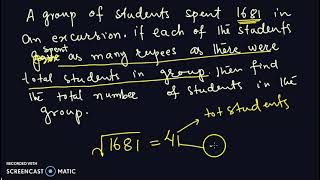 A group of students spent 1681 in
an excursion. if each of the students
spent
as many rupees as there were
total students in group then find
the total number of students in the
group.
tot students
√1681 = 41
RECORDED WITH
SCREENCAST MATIC